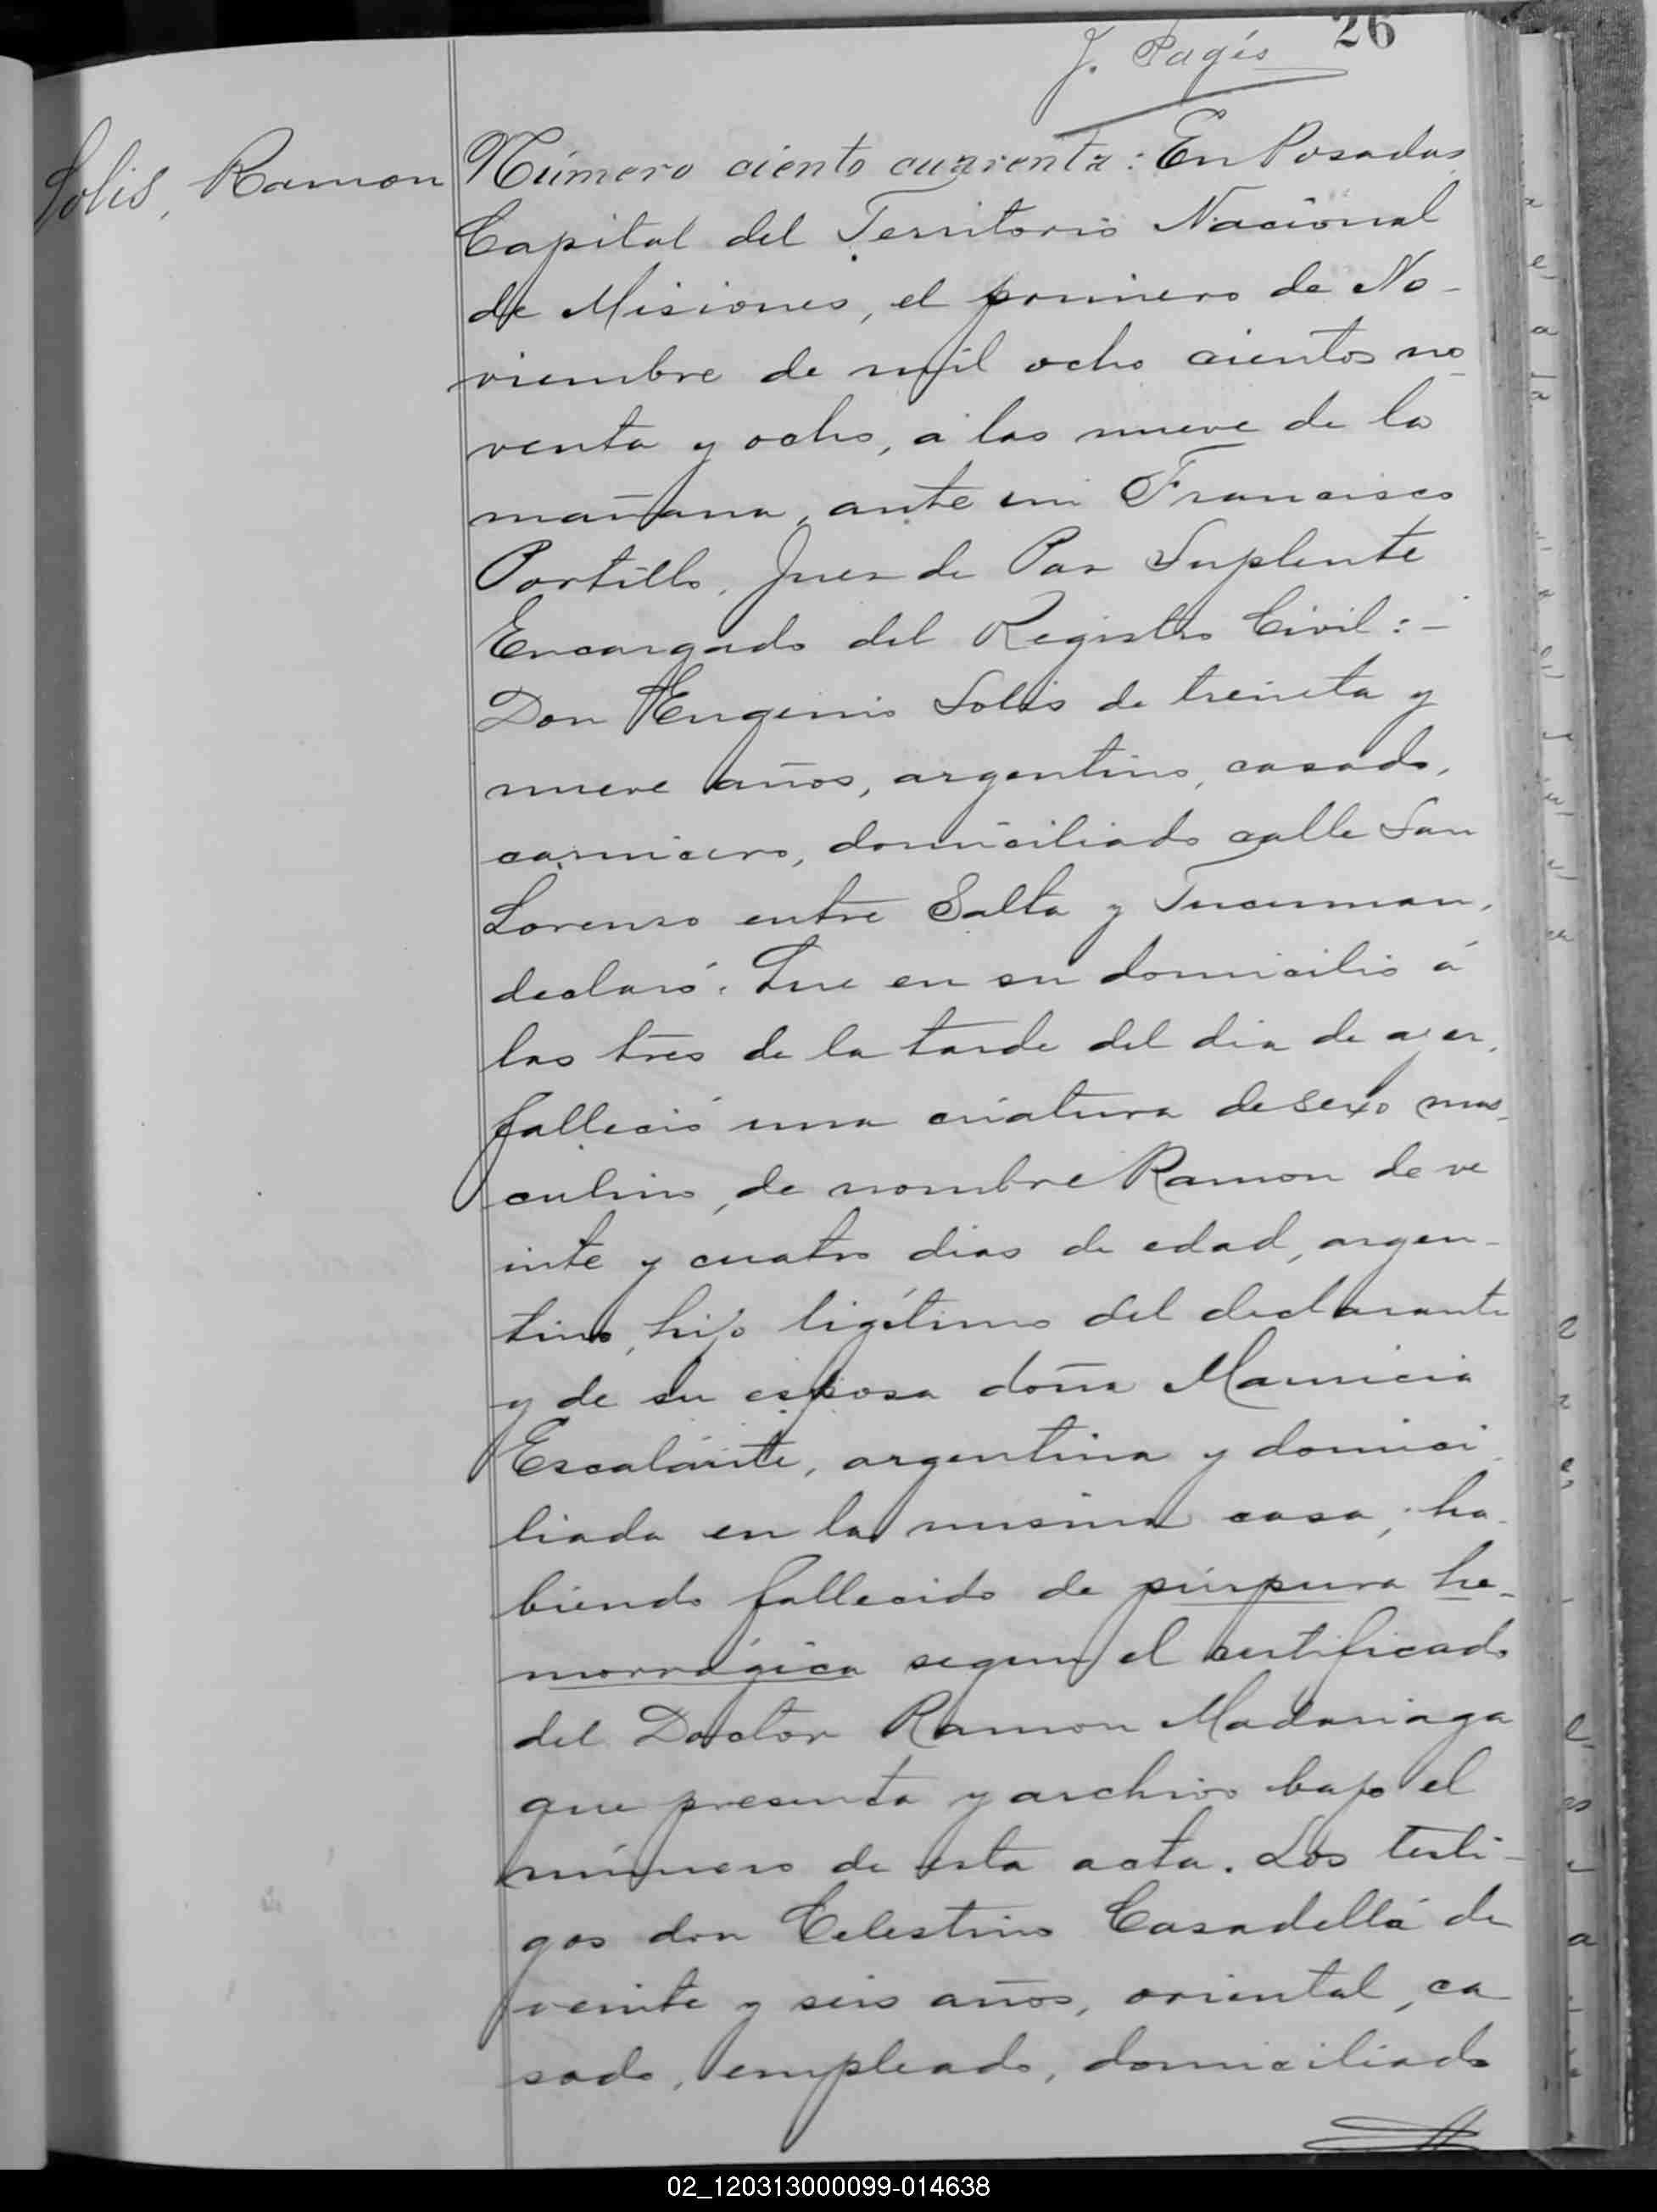 26
J. Pagés
Solis, Ramon
Número ciento cuarenta: En Posadas
Capital del Territorio Nacional
de Misiones, el primero de No-
viembre de mil ocho cientos no-
venta y ocho, á las nueve de la
mañana, ante mi Francisco
Portillo, Juez de Paz Suplente
Encargado del Registro Civil:-
Don Eugenio Solis de treinta y
nueve años, argentino, casado,
carnicero, domiciliado calle San
Lorenzo entre Salta y Tucuman,
declaró: Que en su domicilio á
las tres de la tarde del dia de ayer,
falleció una criatura de sexo mas-
culino, de nombre Ramon de ve
inte y cuatro dias de edad, argen-
tino, hijo ligítimo del declarante
y de su esposa doña Mauricia
Escalante, argentina y domici-
liada en la misma casa; ha-
biendo fallecido de púrpura he-
morrágica segun el certificado
del Doctor Ramon Madariaga
que presenta y archivo bajo el
número de esta acta. Los testi-
gos don Celestino Casadellá de
veinte y seis años, oriental, ca
sado, empleado, domiciliado
02_120313000099-014638